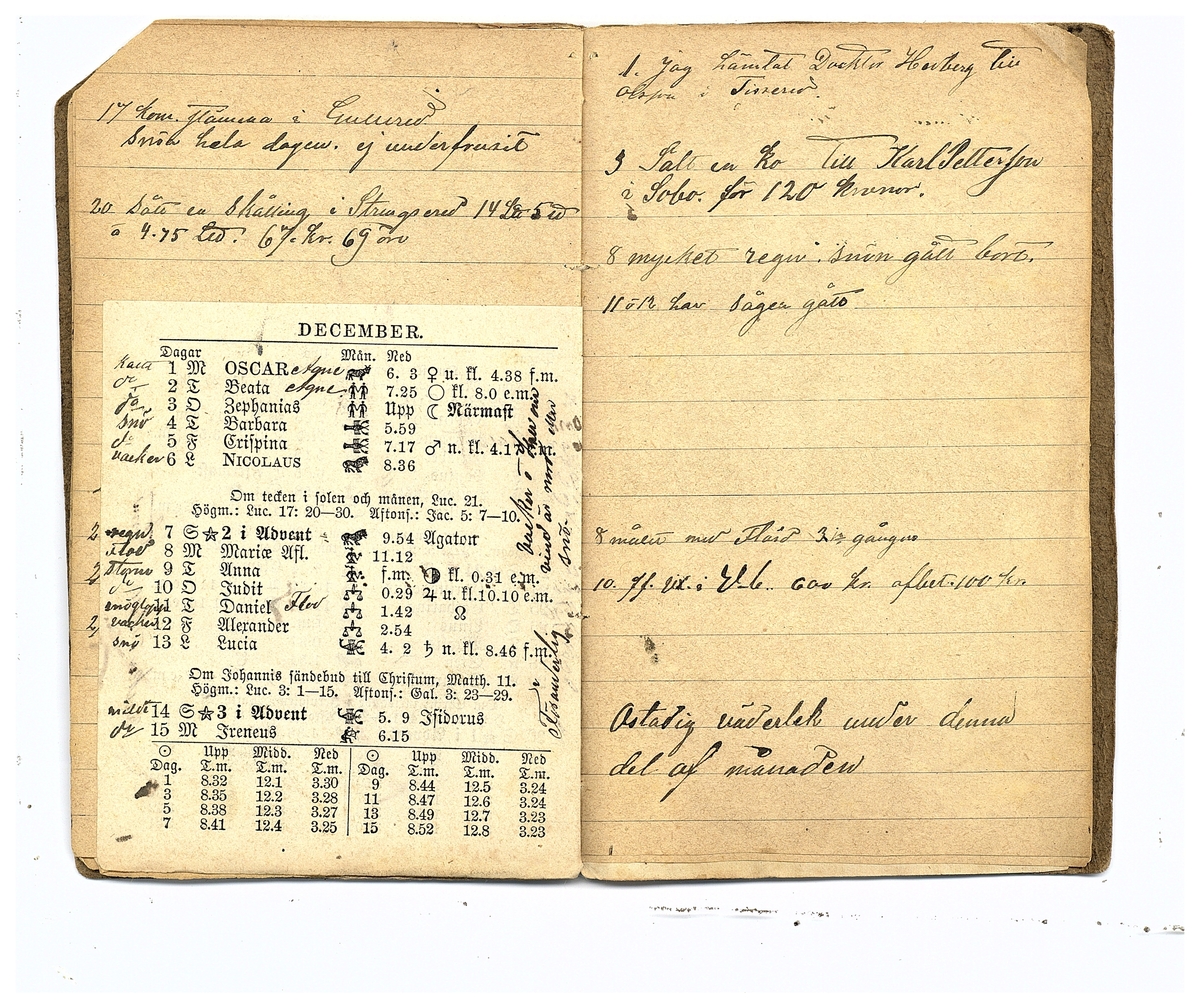 17 kom flamma i Gullered
snöa hela dagen. ej underfrusit
20 Sålt en Skålling i Strängsered 14 5
a 4.75 67. kr. 69 öre
DECEMBER.
Dagar Mån. Ned
1 M OSCAR Agne 6. 3 ♀ u. kl. 4.38 f.m.
do 2 T Beata Agne 7.25 ○ kl. 8.0 e.m.
do 3 O Zephanias Upp ☾ Närmast
snö 4 T Barbara 5.59
do 5 F Crispina 7.17 ♂ n. kl. 4.17 f.m.
vacker 6 L NICOLAUS 8.36
Om tecken i solen och månen, Luc. 21.
Högm.: Luc. 17: 20—30. Aftons.: Jac. 5: 7—10.
regn 7 S ☆ 2 i Advent 9.54 Agaton
8 M Mariæ Afl. 11.12
storm 9 T Anna f.m. ◑ kl. 0.31 e.m.
do 10 O Judit 0.29 ♃ u. kl. 10.10 e.m.
snöglopp 11 T Daniel 1.42 ☊
vacker 12 F Alexander 2.54
snö 13 L Lucia 4. 2 ♄ n. kl. 8.46 f.m.
Om Johannis sändebud till Christum, Matth. 11.
Högm.: Luc. 3: 1—15. Aftons.: Gal. 3: 23—29.
mildt 14 S ☆ 3 i Advent 5. 9 Isidorus
do 15 M Ireneus 6.15
☉ Upp Midd. Ned ☉ Upp Midd. Ned
Dag. T.m. T.m. T.m. Dag. T.m. T.m. T.m.
1 8.32 12.1 3.30 9 8.44 12.5 3.24
3 8.35 12.2 3.28 11 8.47 12.6 3.24
5 8.38 12.3 3.27 13 8.49 12.7 3.23
7 8.41 12.4 3.25 15 8.52 12.8 3.23
vacker
snö
1. Jag hämtat Docktor Hedberg till
i Tissered.
3 Sålt en ko till Karl Petterson
i Sobo. för 120 kronor.
8 mycket regn. snön gått bort.
11 o 12 har sågen gått
8 målen med gångna
10. 600 kr. afbet. 100 kr.
Ostadig väderlek under denna
del af månaden